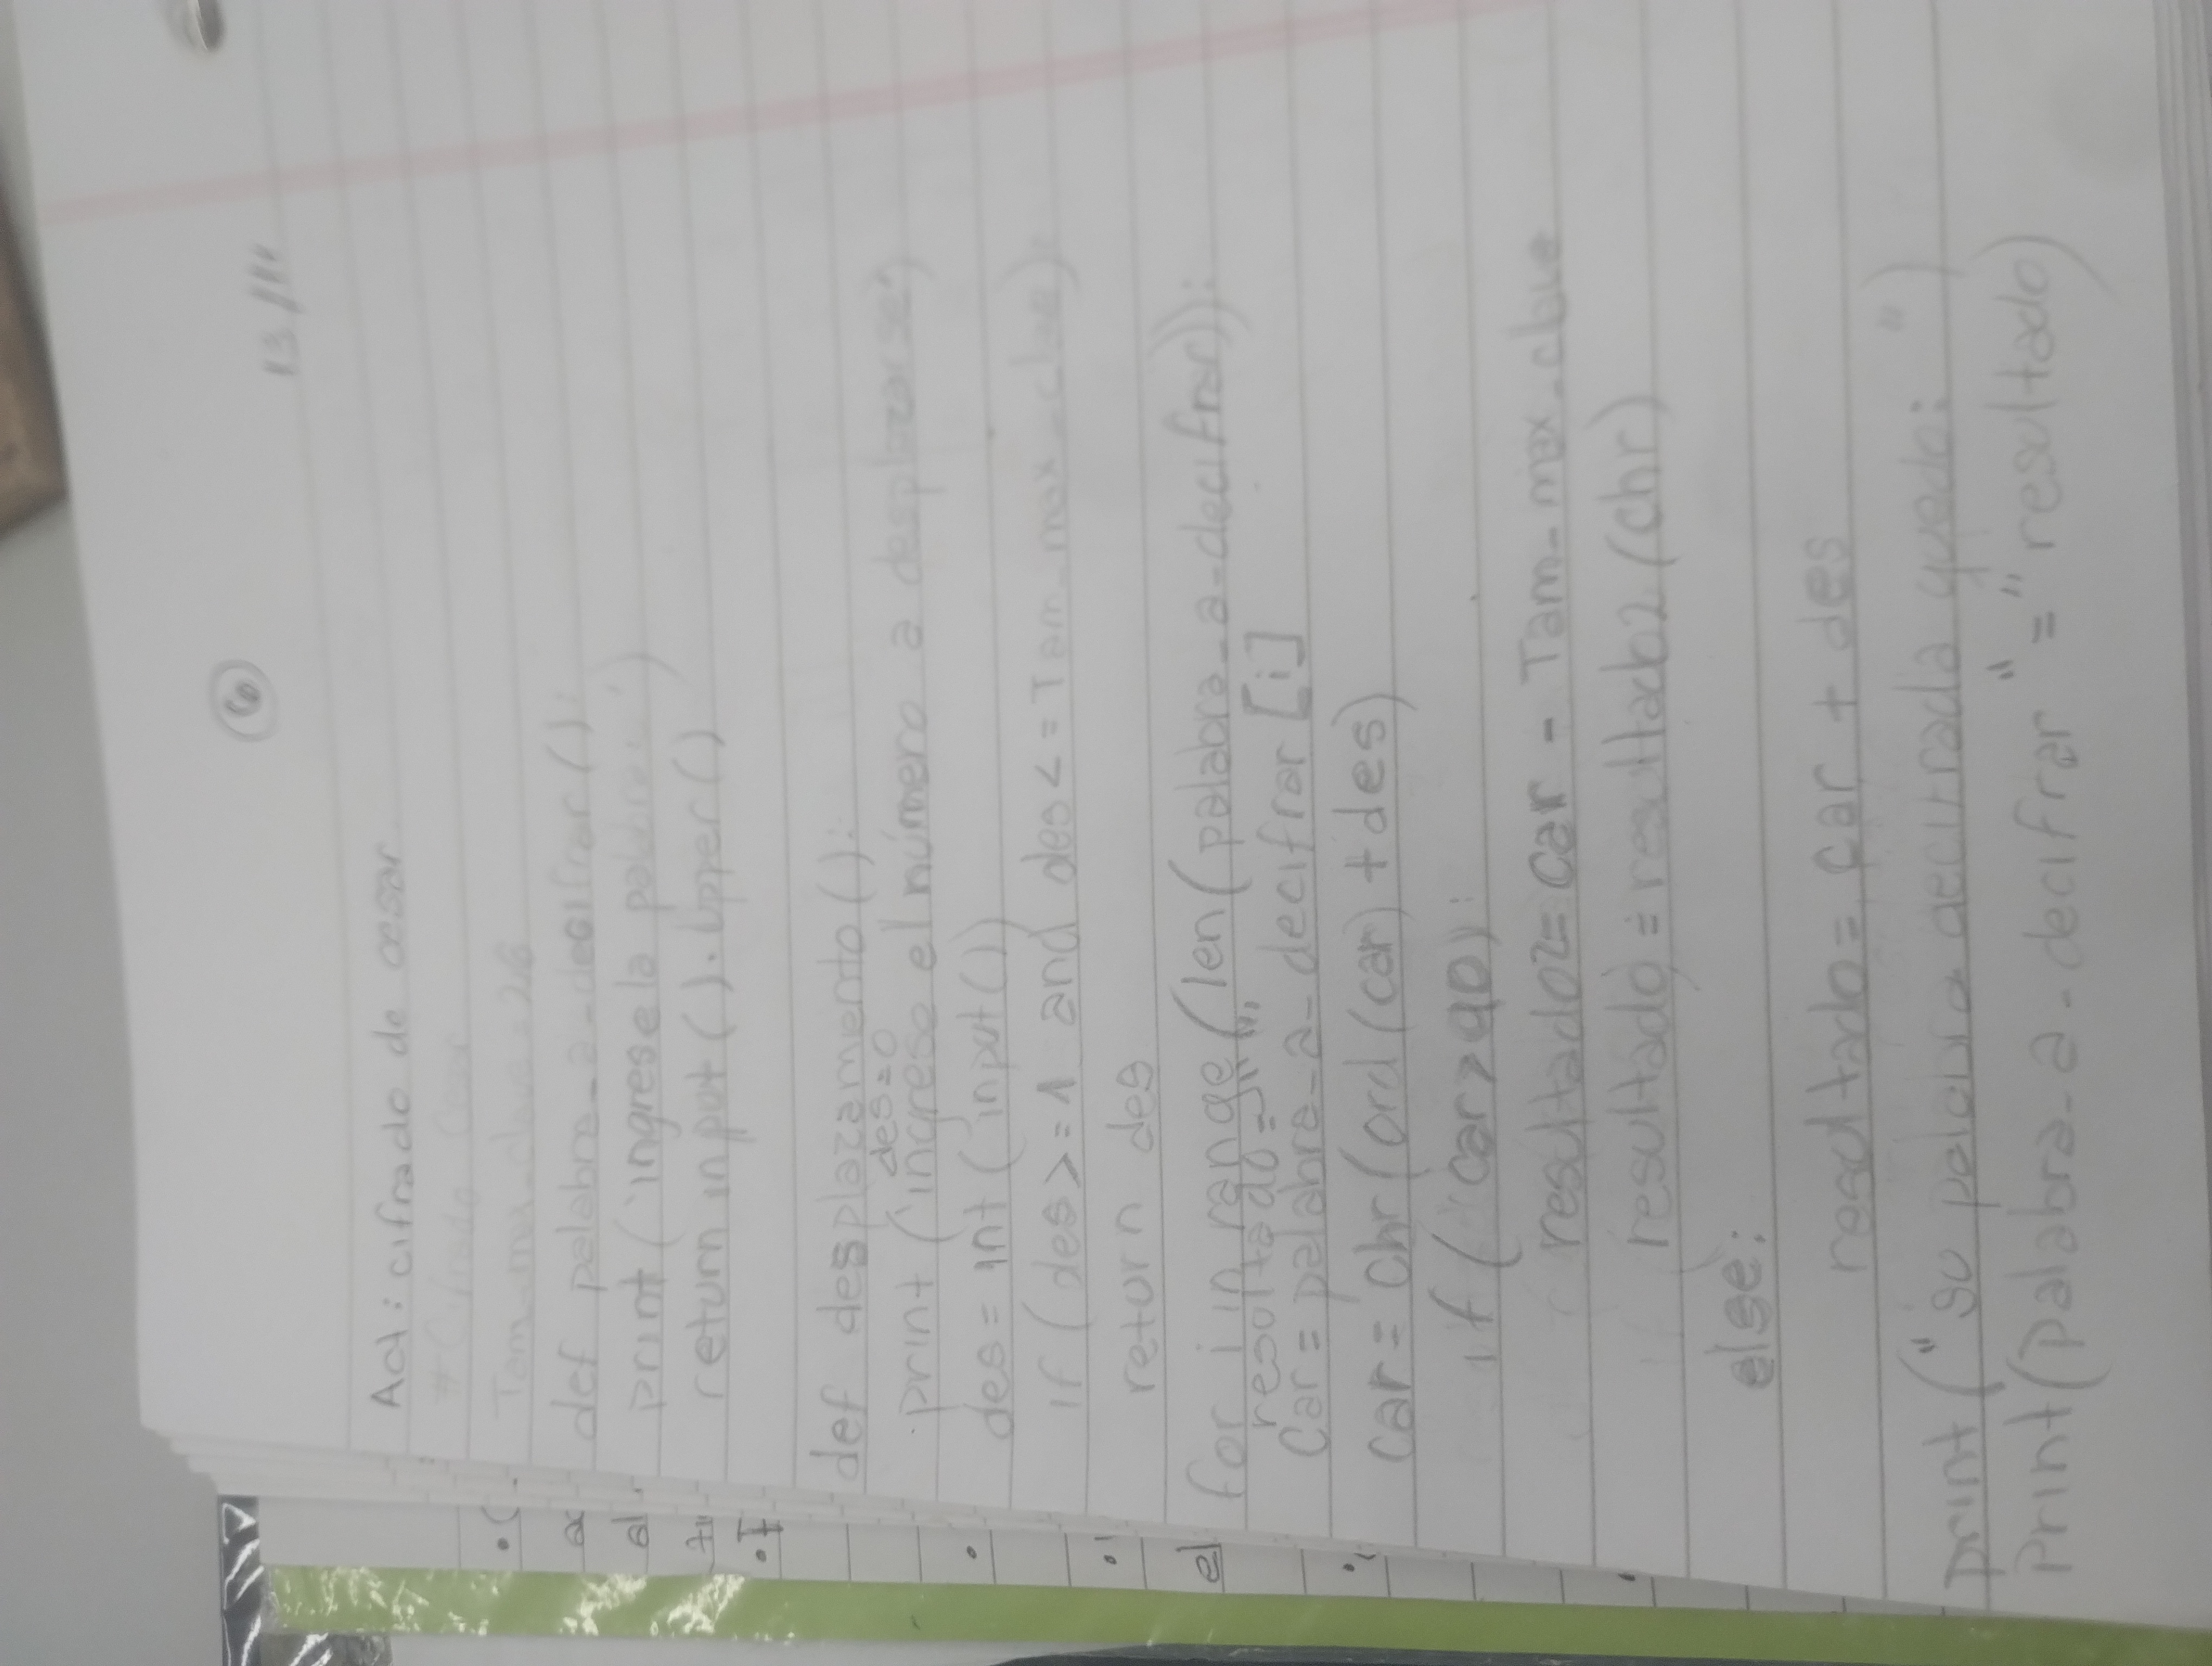 6
13/111
Act: cifrado de cesar
# Cifrado Cesar
Tam_max_clave = 26
def palabra_a_decifrar():
print ('ingrese la palabra: ')
return input().Upper()
def desplazamento():
des=0
print ('ingrese el número a desplazarse')
des = int (input())
if (des >= 1 and des <= Tam_max_clave):
return des
for i in range (len(palabra_a_decifrar)):
resultado = " "
Car = palabra_a_decifrar [i]
car = chr (ord (car) + des)
if ( car > 90):
resultado2 = car - Tam_max_clave
resultado = resultado2 (chr)
else:
resultado = car + des
print ("su palabra decifrada quedo: ")
Print (palabra_a_decifrar "=" resultado)
.C
a
al
tu
.F
el